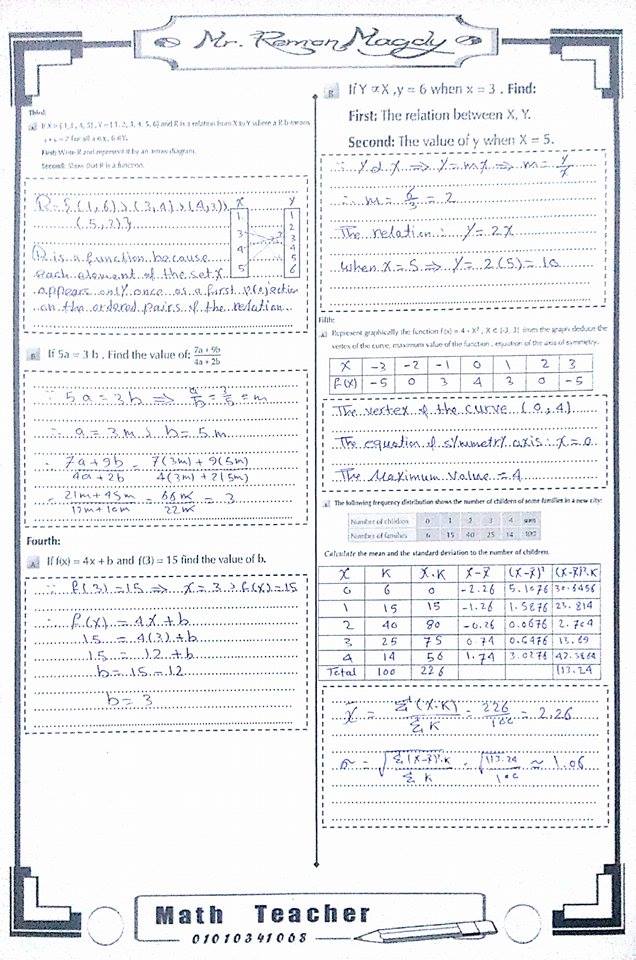 Mr. Romon Magdy
Third:
A If X = {1, 3, 4, 5}, Y = {1, 2, 3, 4, 5, 6} and R is a relation from X to Y where a R b means
a + b = 7 for all a ∈ X, b ∈ Y.
First: Write R and represent it by an arrow diagram.
Second: Show that R is a function.
R = {(1, 6), (3, 4), (4, 3),
(5, 2)}
X Y
1 1
3 2
4 3
5 4
5
6
R is a function because
each element of the set X
appears only once as a first projection
on the ordered pairs of the relation
B If 5a = 3 b . Find the value of: 7a + 9b / 4a + 2b
∵ 5a = 3b ⇒ a/b = 3/5 = m
∴ a = 3m , b = 5m
∴ 7a + 9b / 4a + 2b = 7(3m) + 9(5m) / 4(3m) + 2(5m)
= 21m + 45m / 12m + 10m = 66m / 22m = 3
Fourth:
A If f(x) = 4x + b and f(3) = 15 find the value of b.
∵ f(3) = 15 ⇒ x = 3 , f(x) = 15
∴ f(x) = 4x + b
15 = 4(3) + b
15 = 12 + b
b = 15 - 12
b = 3
B If Y ∝ X , y = 6 when x = 3 . Find:
First: The relation between X, Y.
Second: The value of y when X = 5.
∵ Y ∝ X ⇒ Y = mX ⇒ m = Y/X
∴ m = 6/3 = 2
The relation : Y = 2X
When X = 5 ⇒ Y = 2(5) = 10
Fifth:
A Represent graphically the function f(x) = 4 - X² , X ∈ [-3, 3] from the graph deduce the
vertex of the curve, maximum value of the function , equation of the axis of symmetry.
X -3 -2 -1 0 1 2 3
f(X) -5 0 3 4 3 0 -5
The vertex of the curve (0, 4)
The equation of symmetry axis : X = 0
The Maximum value = 4
The following frequency distribution shows the number of children of some families in a new city:
Number of children 0 1 2 3 4 sum
Number of families 6 15 40 25 14 100
Calculate the mean and the standard deviation to the number of children.
X K X·K X-X̄ (X-X̄)² (X-X̄)²·K
0 6 0 -2.26 5.1076 30.6456
1 15 15 -1.26 1.5876 23.814
2 40 80 -0.26 0.0676 2.704
3 25 75 0.74 0.5476 13.69
4 14 56 1.74 3.0276 42.3864
Total 100 226 113.24
X̄ = Σ(X·K) / ΣK = 226 / 100 = 2.26
σ = √(Σ(X-X̄)²·K / ΣK) = √(113.24 / 100) ≈ 1.06
Math Teacher
01010341068